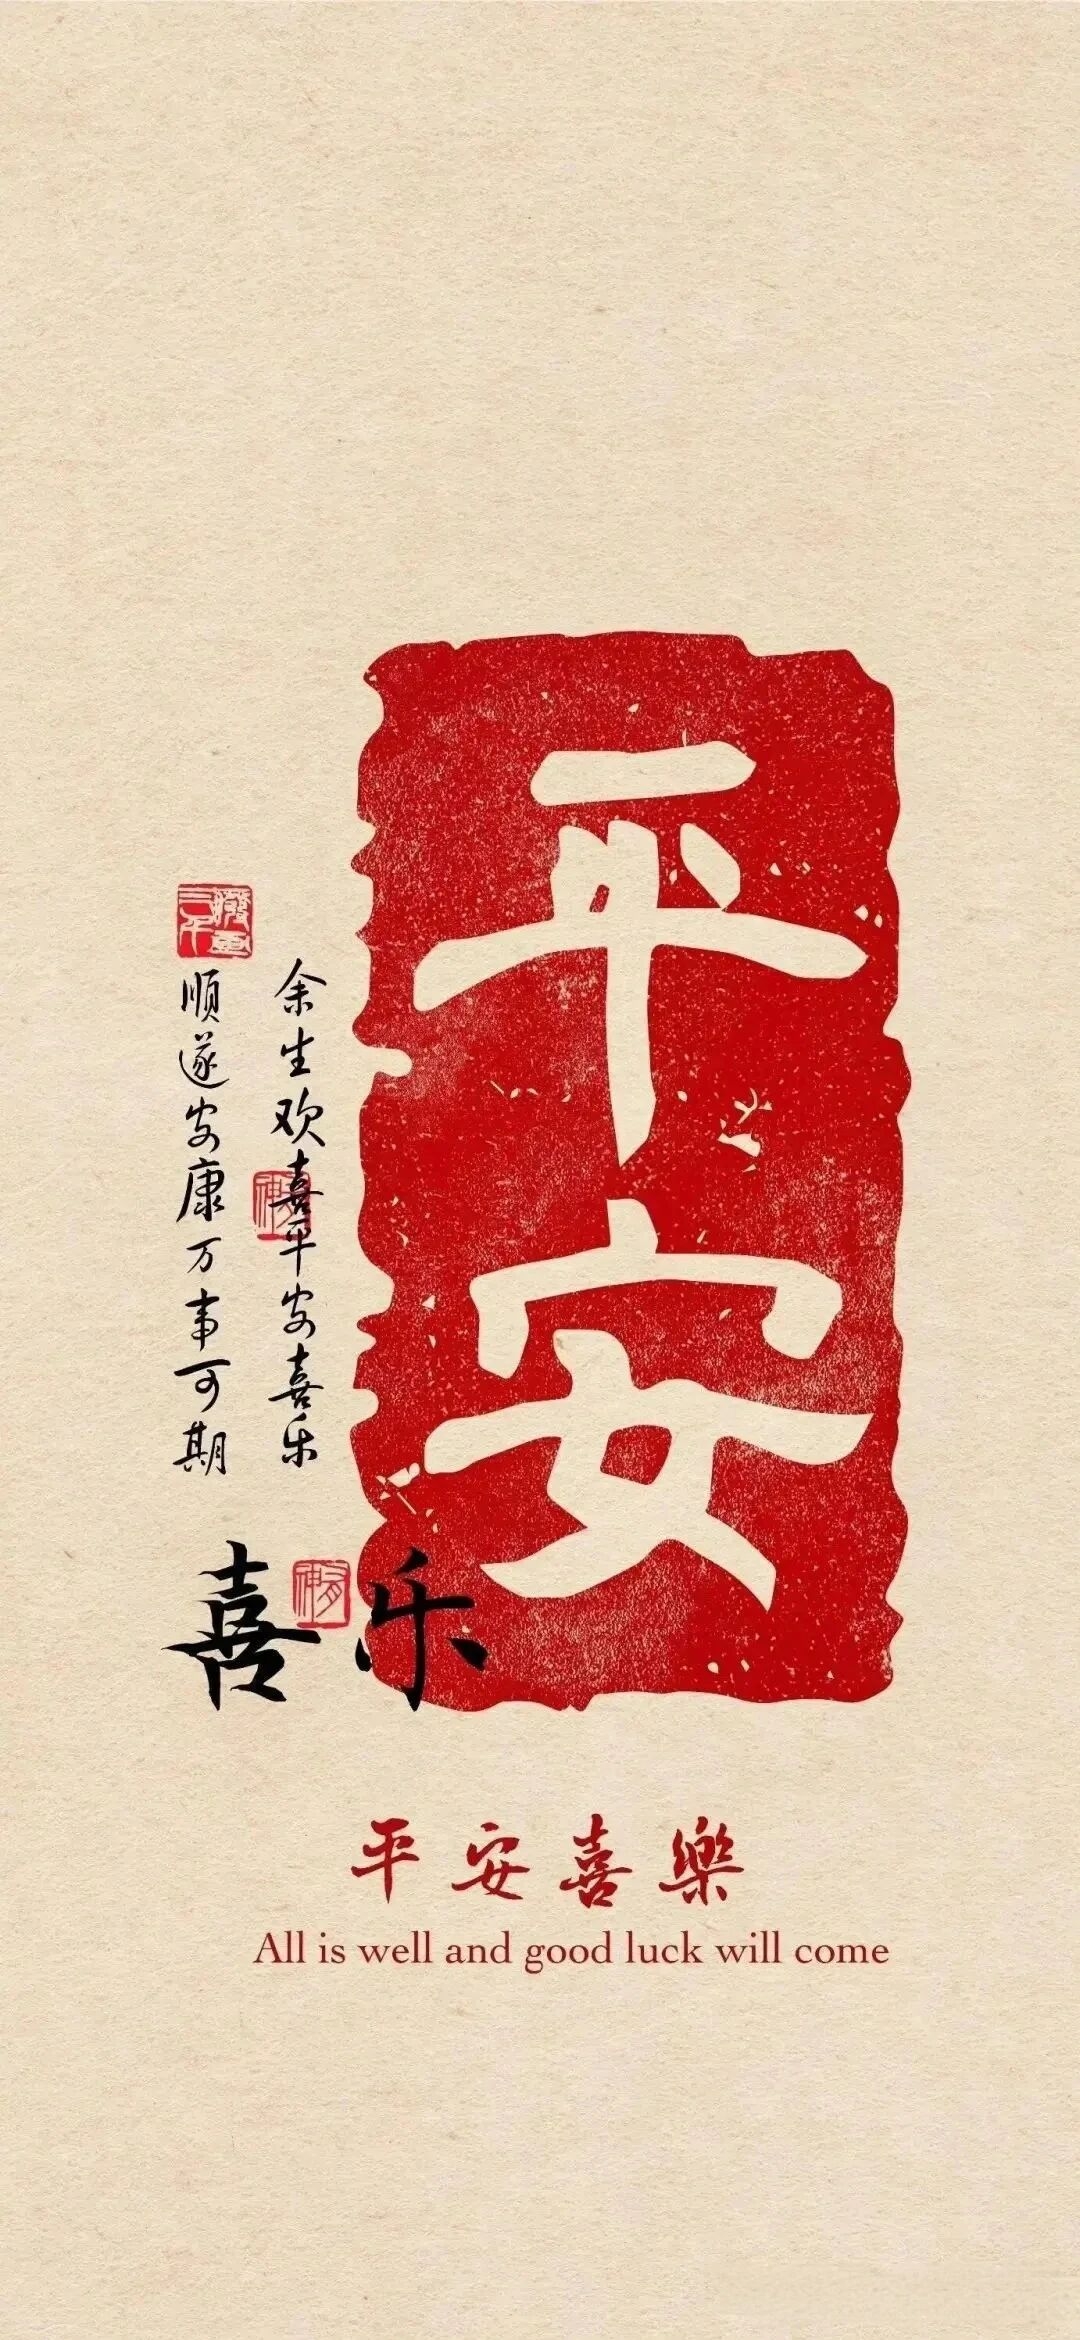 平安
余生欢喜平安喜乐
顺遂安康万事可期
喜乐
平安喜樂
All is well and good luck will come